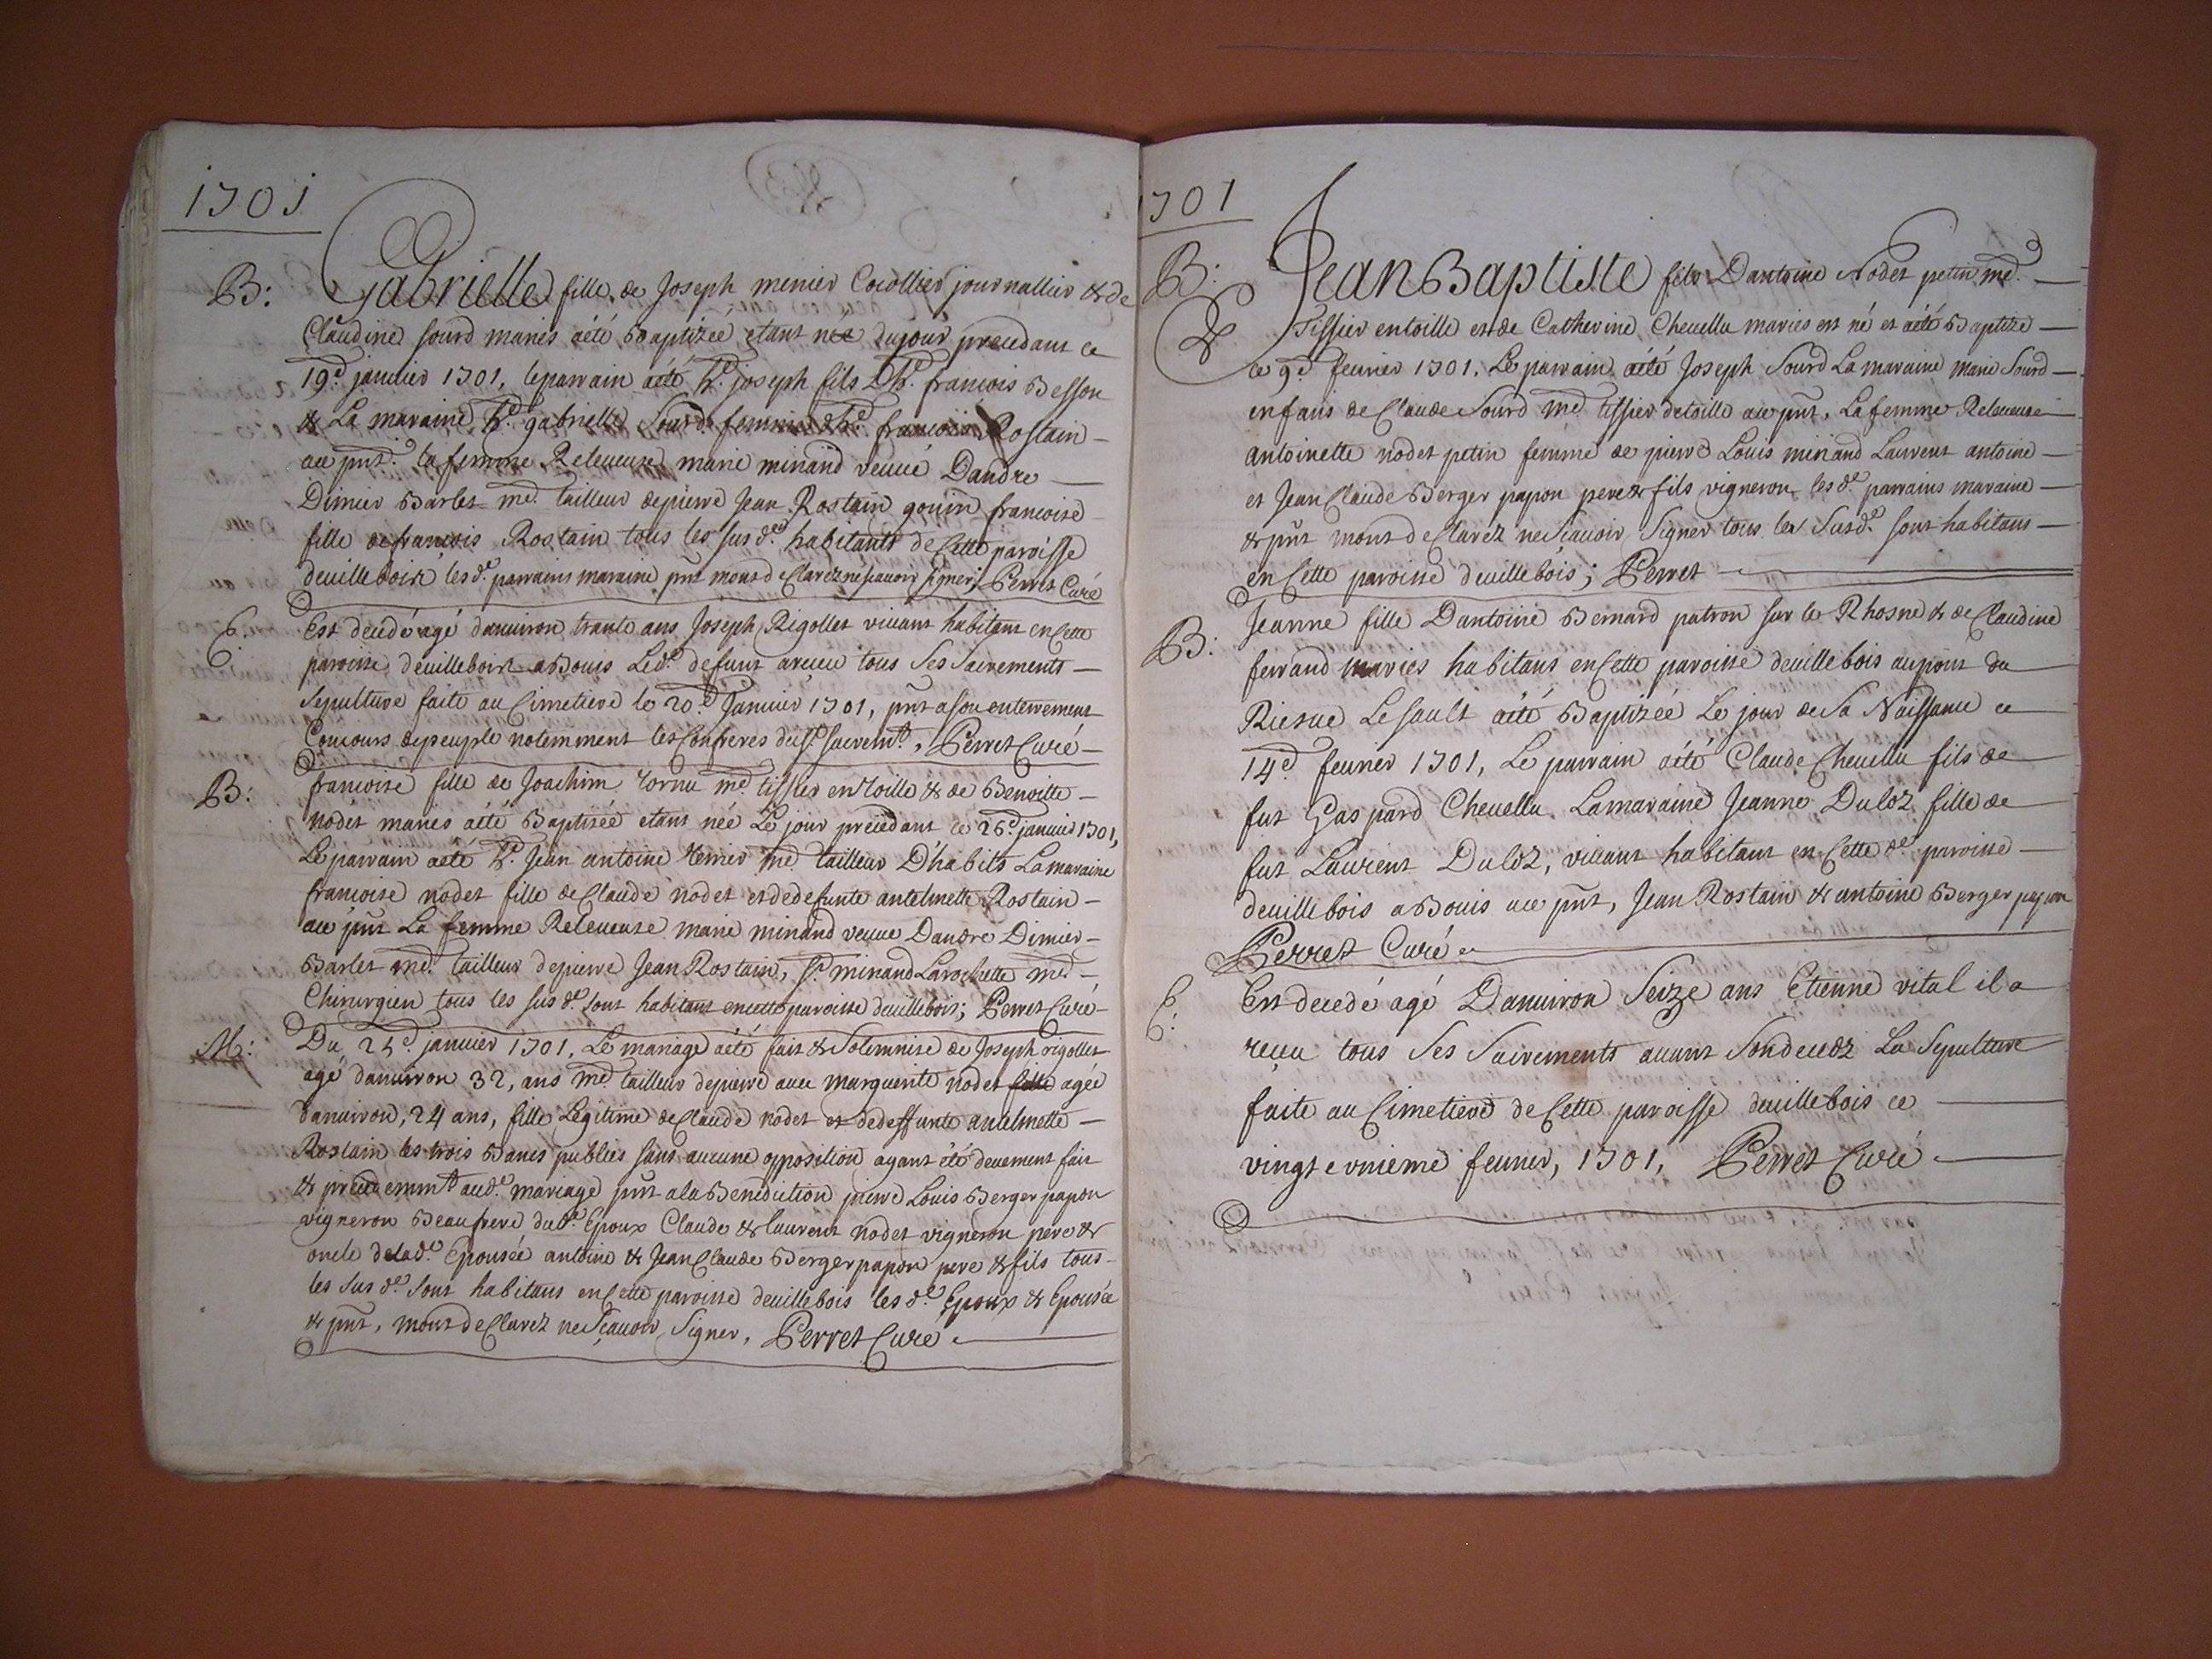 1701
B: Gabrielle fille de Joseph menier Cocollier journallier & de
Claudine Sourd mariés aété Baptizée etant née dujour precedant ce
19.e janvier 1701, leparrain aété h.e joseph fils D'h.e francois Besson
& La maraine h.e gabrielle Sourd femme d'h.e francois Rostain –
aue pnt. la femme Releueuse marie minand veuue Dandre —
Dimier Barlet me. tailleur depierre Jean Rostain gouin francoise
fille defrancois Rostain tous les susd.es habitants deCette paroisse
deuillebois les d.e parrains maraine pnt mont deClarez nesçauoir signer; Perret Curé
E: Est decedé agé danuiron trante ans Joseph Rigollet viuant habitant enCette
paroisse deuillebois aBouis Led.e defunt areceu tous Ses Sacrements —
Sepulture faite au Cimetiere le 20.e Janvier 1701, pnt ason enterrement
Concours depeuple notemment les Confreres du st. sacrem.t, Perret Curé —
B: francoise fille de Joachim me. tissier en Toille & de Benoitte —
nodet mariés aété Baptisée etant née Le jour precedant ce 26.e janvier 1701,
Le parrain aeté h.e Jean antoine me. tailleur D'habits La maraine
francoise nodet fille de Claude nodet et dedefunte antelmette Rostain –
aue pnt La femme Releueuse marie minand veuue Dandre Dimier –
Barlet me. tailleur depierre Jean Rostain, Sr. minand Larochette me. –
Chirurgien tous les sus d.e sont habitant encette paroisse deuillebois; Perret Curé –
M: Du janvier 1701, Le mariage aété fait & Solemnise de Joseph rigollet
agé danuiron 32, ans me. tailleur depierre auec marguerite nodet agée
danuiron, 24 ans, fille Legitime deClaude nodet et dedeffunte antelmette —
Rostain les trois Bancs publiés sans aucune opposition ayant été deuement fait
& precedemm.t aud.e mariage pnt ala Benediction pierre Louis Berger papon
vigneron Beaufrere dud.e Epoux Claude & laurent nodet vigneron pere &
oncle delad.e Epousée antoine & Jean Claude Berger papon pere & fils tous –
les sus d.e sont habitans enCette paroisse deuillebois les d.e Epoux & Epousée
& pnt, mont deClarez nesçauoir Signer, Perret Curé
1701
B: Jean Baptiste fils Dantoine Nodet petin me. —
Tissier entoille et de Catherine Cheuellu mariés est né et aété Baptizé —
ce 9.e feurier 1701. Le parrain aété Joseph Sourd La maraine marie Sourd —
enfans de Claude Sourd me. tissier detoille aue pnt, La femme Releueuse
antoinette nodet petin femme de pierre Louis minand Laurent antoine —
et Jean Claude Berger papon pere & fils vigneron les d.e parrains maraine —
& pnt mont deClarez nesçauoir Signer tous les Susd.e sont habitans —
en Cette paroisse deuillebois; Perret
B: Jeanne fille Dantoine Bernard patron sur le Rhosne & de Claudine
ferrand mariés habitans enCette paroisse deuillebois auport du
Lesault aété Baptizée Le jour de Sa Naissance ce
14.e feurier 1701, Le parrain aété Claude Cheuellu fils de
fut Gaspard Cheuellu Lamaraine Jeanne Duloz fille de
fut Laurent Duloz, viuant habitant en Cette d.e paroisse —
deuillebois aBouis aue pnt, Jean Rostain & antoine Berger papon
Perret Curé
E: Est decedé agé Danuiron Seize ans Etienne vital il a
reçeu tous Ses Sacrements auant Sondecez La Sepulture
faite au Cimetiere deCette paroisse deuillebois ce —
vingt e unieme feurier, 1701, Perret Curé